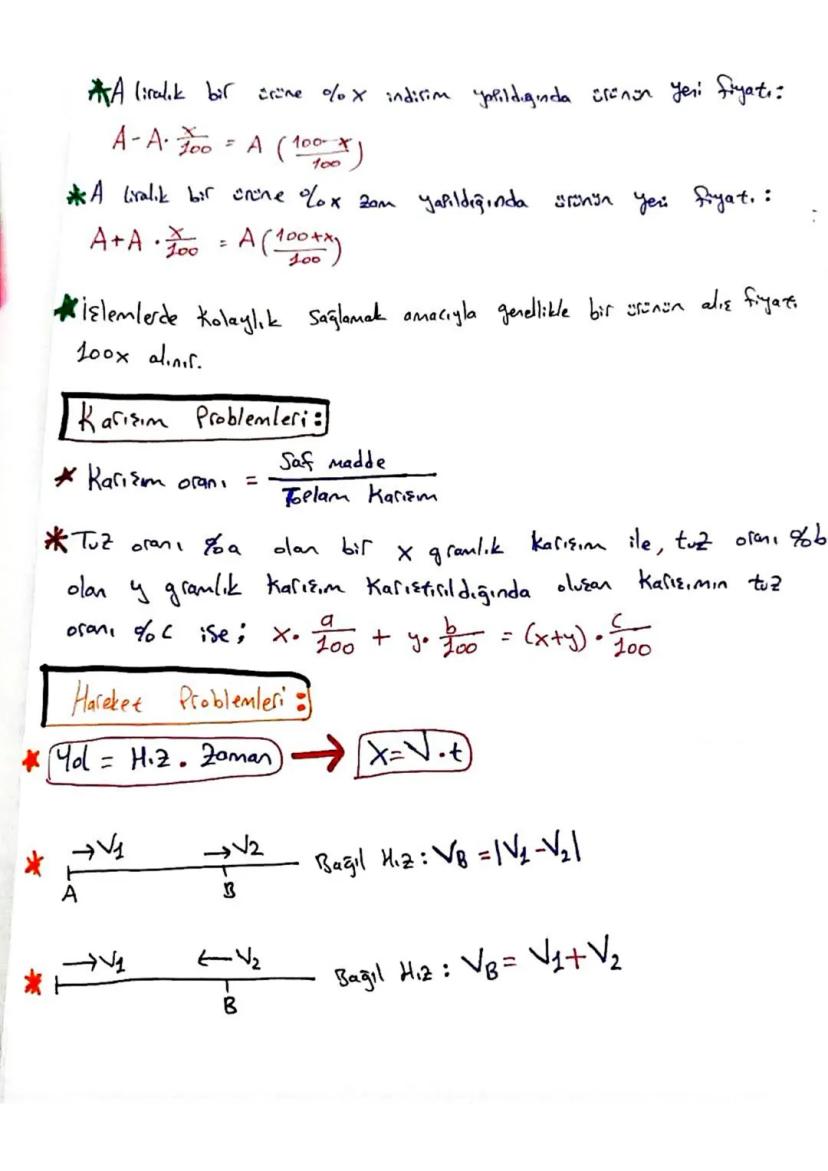 *A liralık bir ürüne %x indirim yapıldığında ürünün yeni fiyatı:
A-A·x/100 = A(100-x/100)
*A liralık bir ürüne %x zam yapıldığında ürünün yeni fiyatı:
A+A·x/100 = A(100+x/100)
*İşlemlerde kolaylık sağlamak amacıyla genellikle bir ürünün alış fiyatı
100x alınır.
Karışım Problemleri:
* Karışım oranı = Saf madde / Toplam Karışım
*Tuz oranı %a olan bir x gramlık karışım ile, tuz oranı %b
olan y gramlık karışım karıştırıldığında oluşan karışımın tuz
oranı %c ise; x·a/100 + y·b/100 = (x+y)·c/100
Hareket Problemleri:
* Yol = Hız . Zaman → X=V.t
* →V1 →V2 Bağıl Hız: VB =|V1-V2|
A B
* →V1 ←V2 Bağıl Hız: VB= V1+V2
B